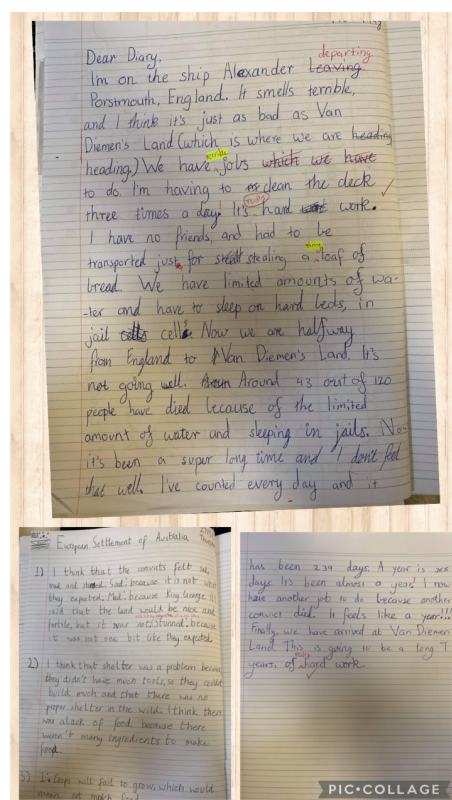 Dear Diary,
departing
I'm on the ship Alexander Leaving
Porstmouth, England. It smells terrible,
and I think it's just as bad as Van
Diemen's Land (which is where we are heading
heading.) We have terrible jobs which we have
to do. I'm having to clean the deck
three times a day! It's really hard work.
I have no friends, and had to be
transported just for stealing a tiny loaf of
bread. We have limited amounts of wa-
-ter and have to sleep on hard beds, in
jail cells cells. Now we are halfway
from England to Van Diemen's Land. It's
not going well. Around 43 out of 120
people have died because of the limited
amount of water and sleeping in jails.
it's been a super long time and I don't feel
that well. I've counted every day and it
European Settlement of Australia
1) I think that the convicts felt
mad and Sad: because it is not
they expected. Mad: because King George III
said that the land would be nice and
fertile, but it was not. Stunned: because
it was not one bit like they expected.
2) I think that shelter was a problem because
they didn't have much tools, so they couldn't
build much and that there was no
proper shelter in the wild. I think there
was a lack of food because there
weren't many ingredients to make
food.
3) Crops will fail to grow, which would
mean not much food
has been 239 days. A year is 365
days. It's been almost a year! I now
have another job to do because another
convict died. It feels like a year!!!
Finally, we have arrived at Van Diemen
Land. This is going to be a long 7
years, of really hard work.
PIC•COLLAGE